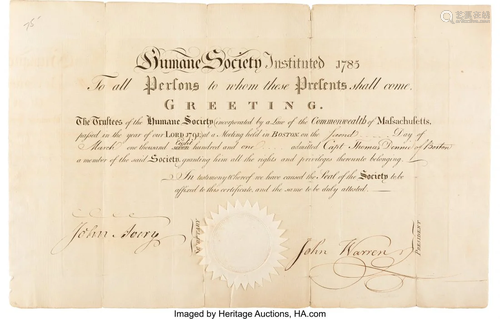 75
Humane Society Instituted 1785
To all Persons to whom these Presents shall come,
GREETING.
The Trustees of the Humane Society incorporated by a Law of the Commonwealth of Massachusetts,
passed in the year of our LORD 1791, at a Meeting held in BOSTON on the second Day of
March one thousand seven eight hundred and one admitted Capt Thomas Dennie of Boston
a member of the said Society, granting him all the rights and privileges thereunto belonging.
In testimony whereof we have caused the Seal of the Society to be
affixed to this certificate, and the same to be duly attested
John Avery
John Warren
PRESIDENT
Imaged by Heritage Auctions, HA.com